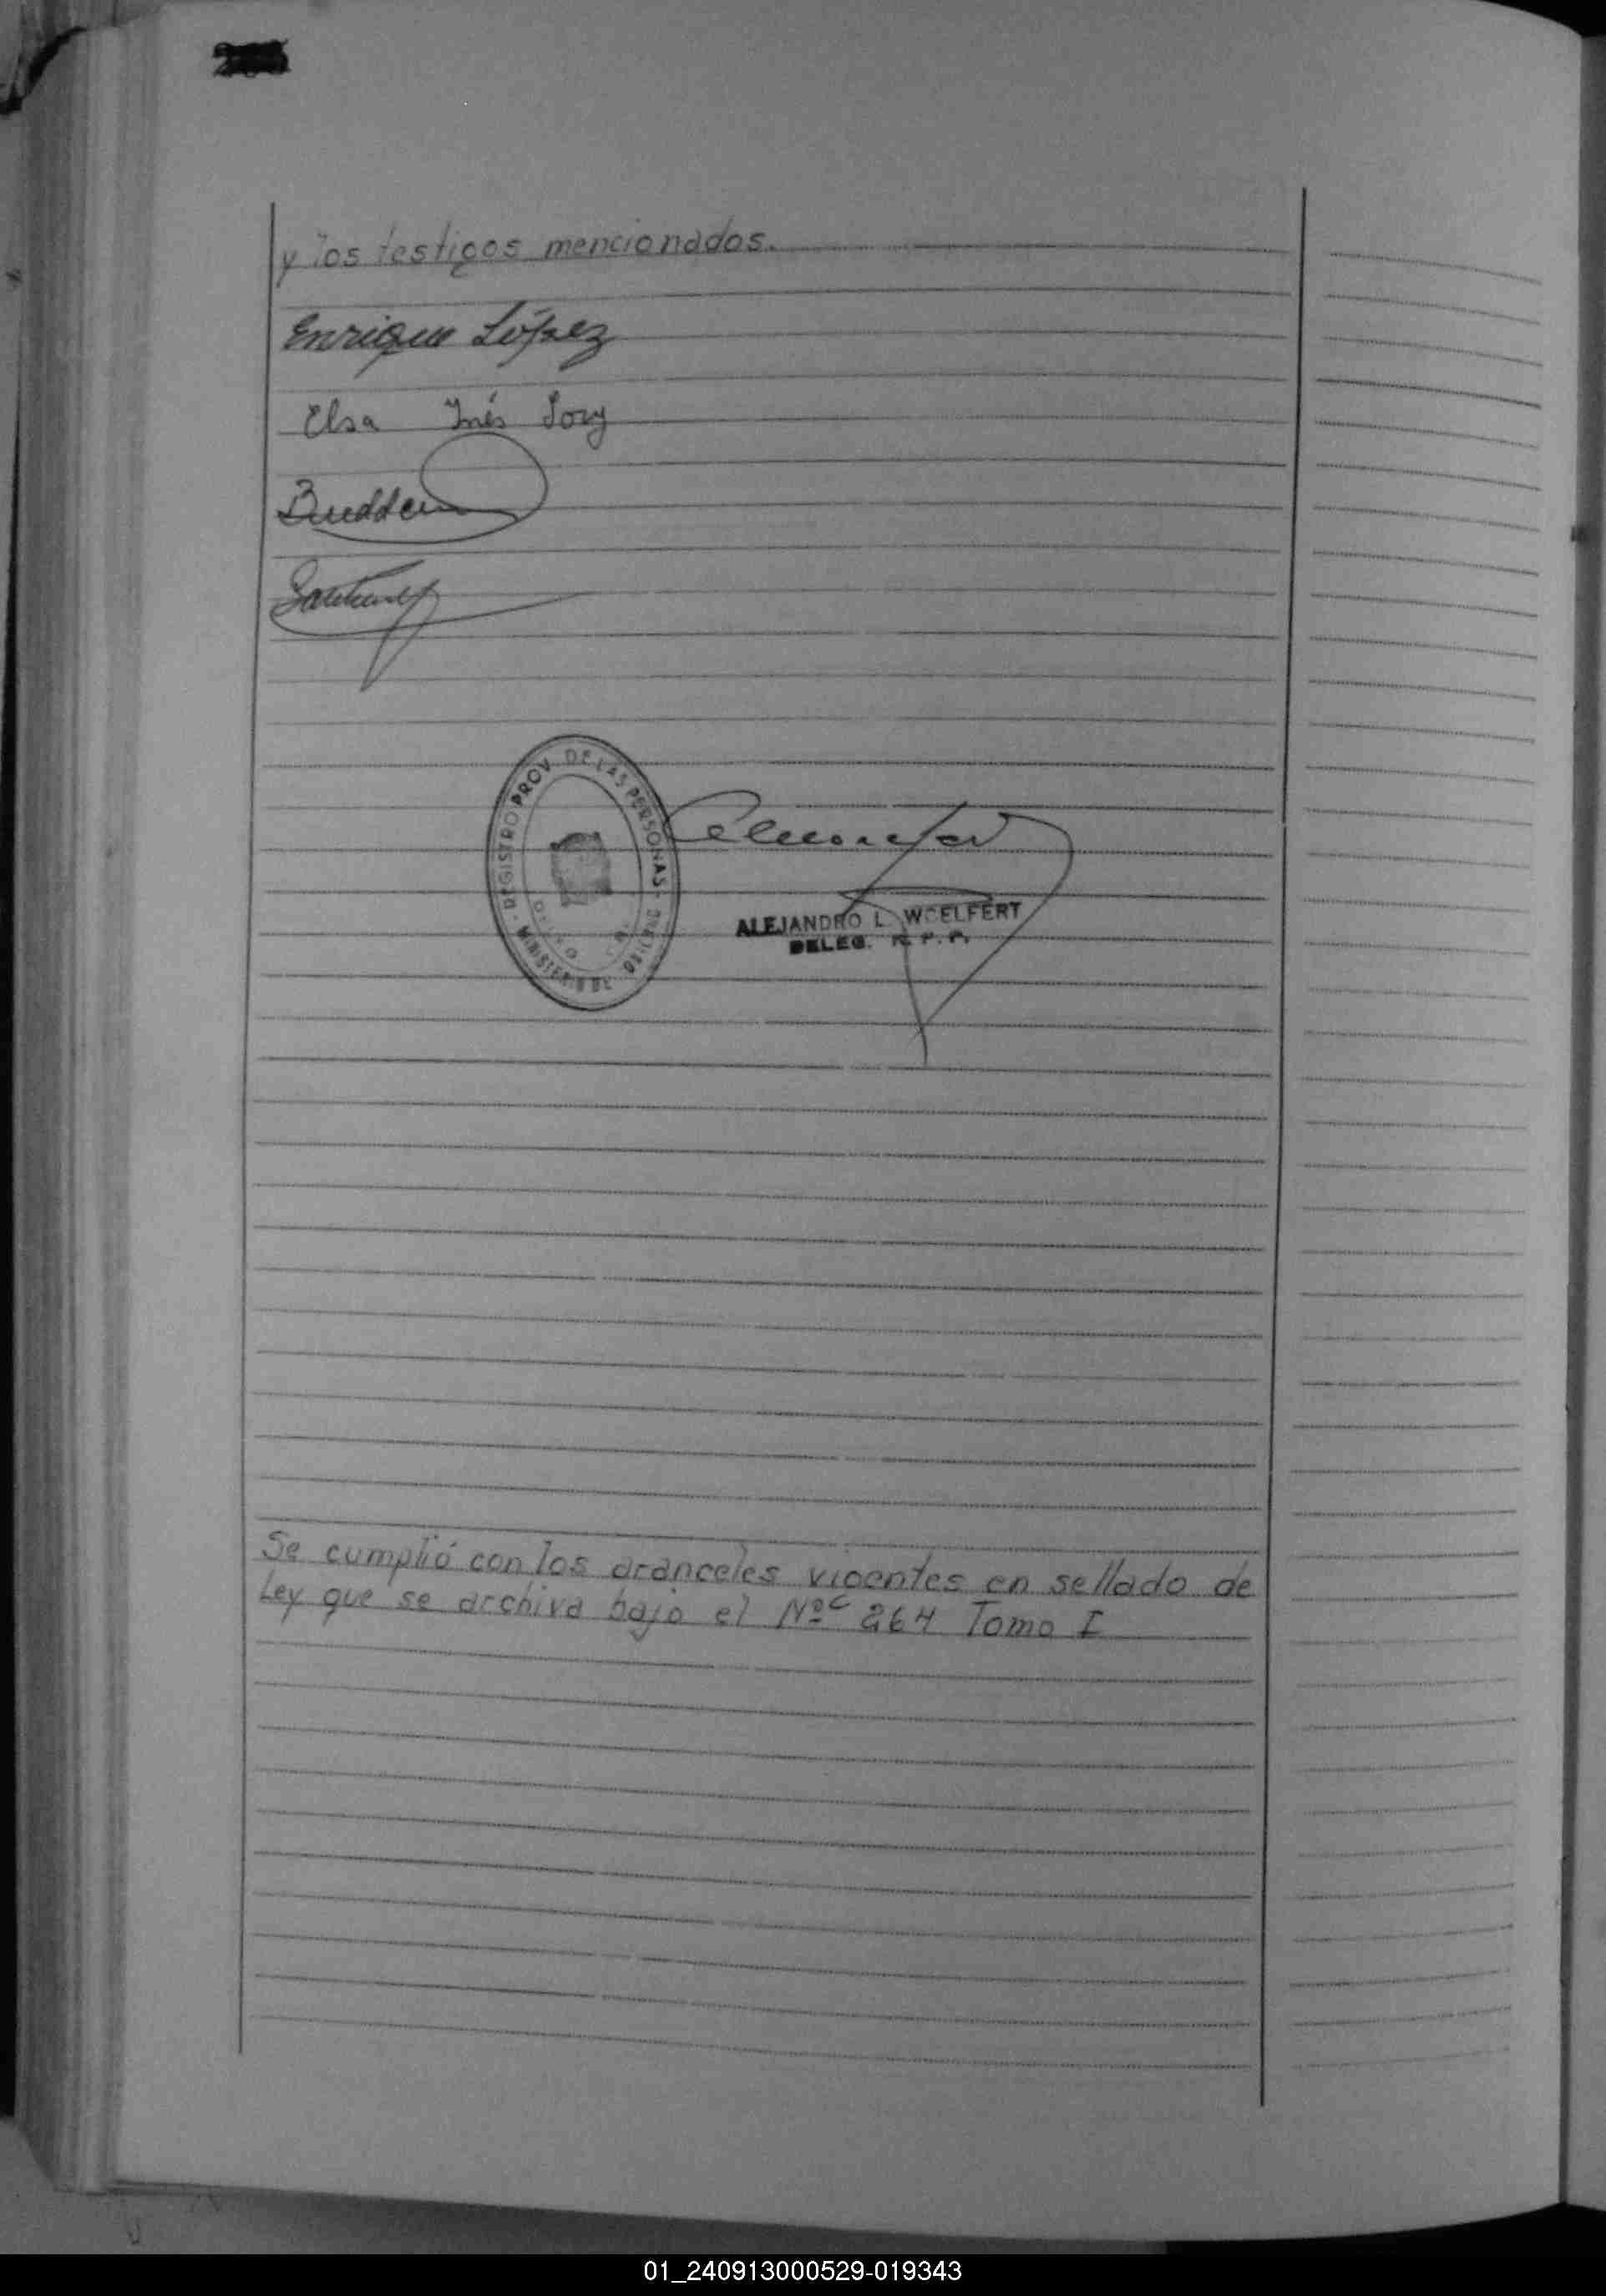 y los testigos mencionados.
Enrique López
Elsa Inés
REGISTRO PROV. DE LAS PERSONAS - MINISTERIO DE
ALEJANDRO L. WOELFERT
DELEG. R.P.P.
Se cumplió con los aranceles vigentes en sellado de
Ley que se archiva bajo el Nº 264 Tomo I
01_240913000529-019343